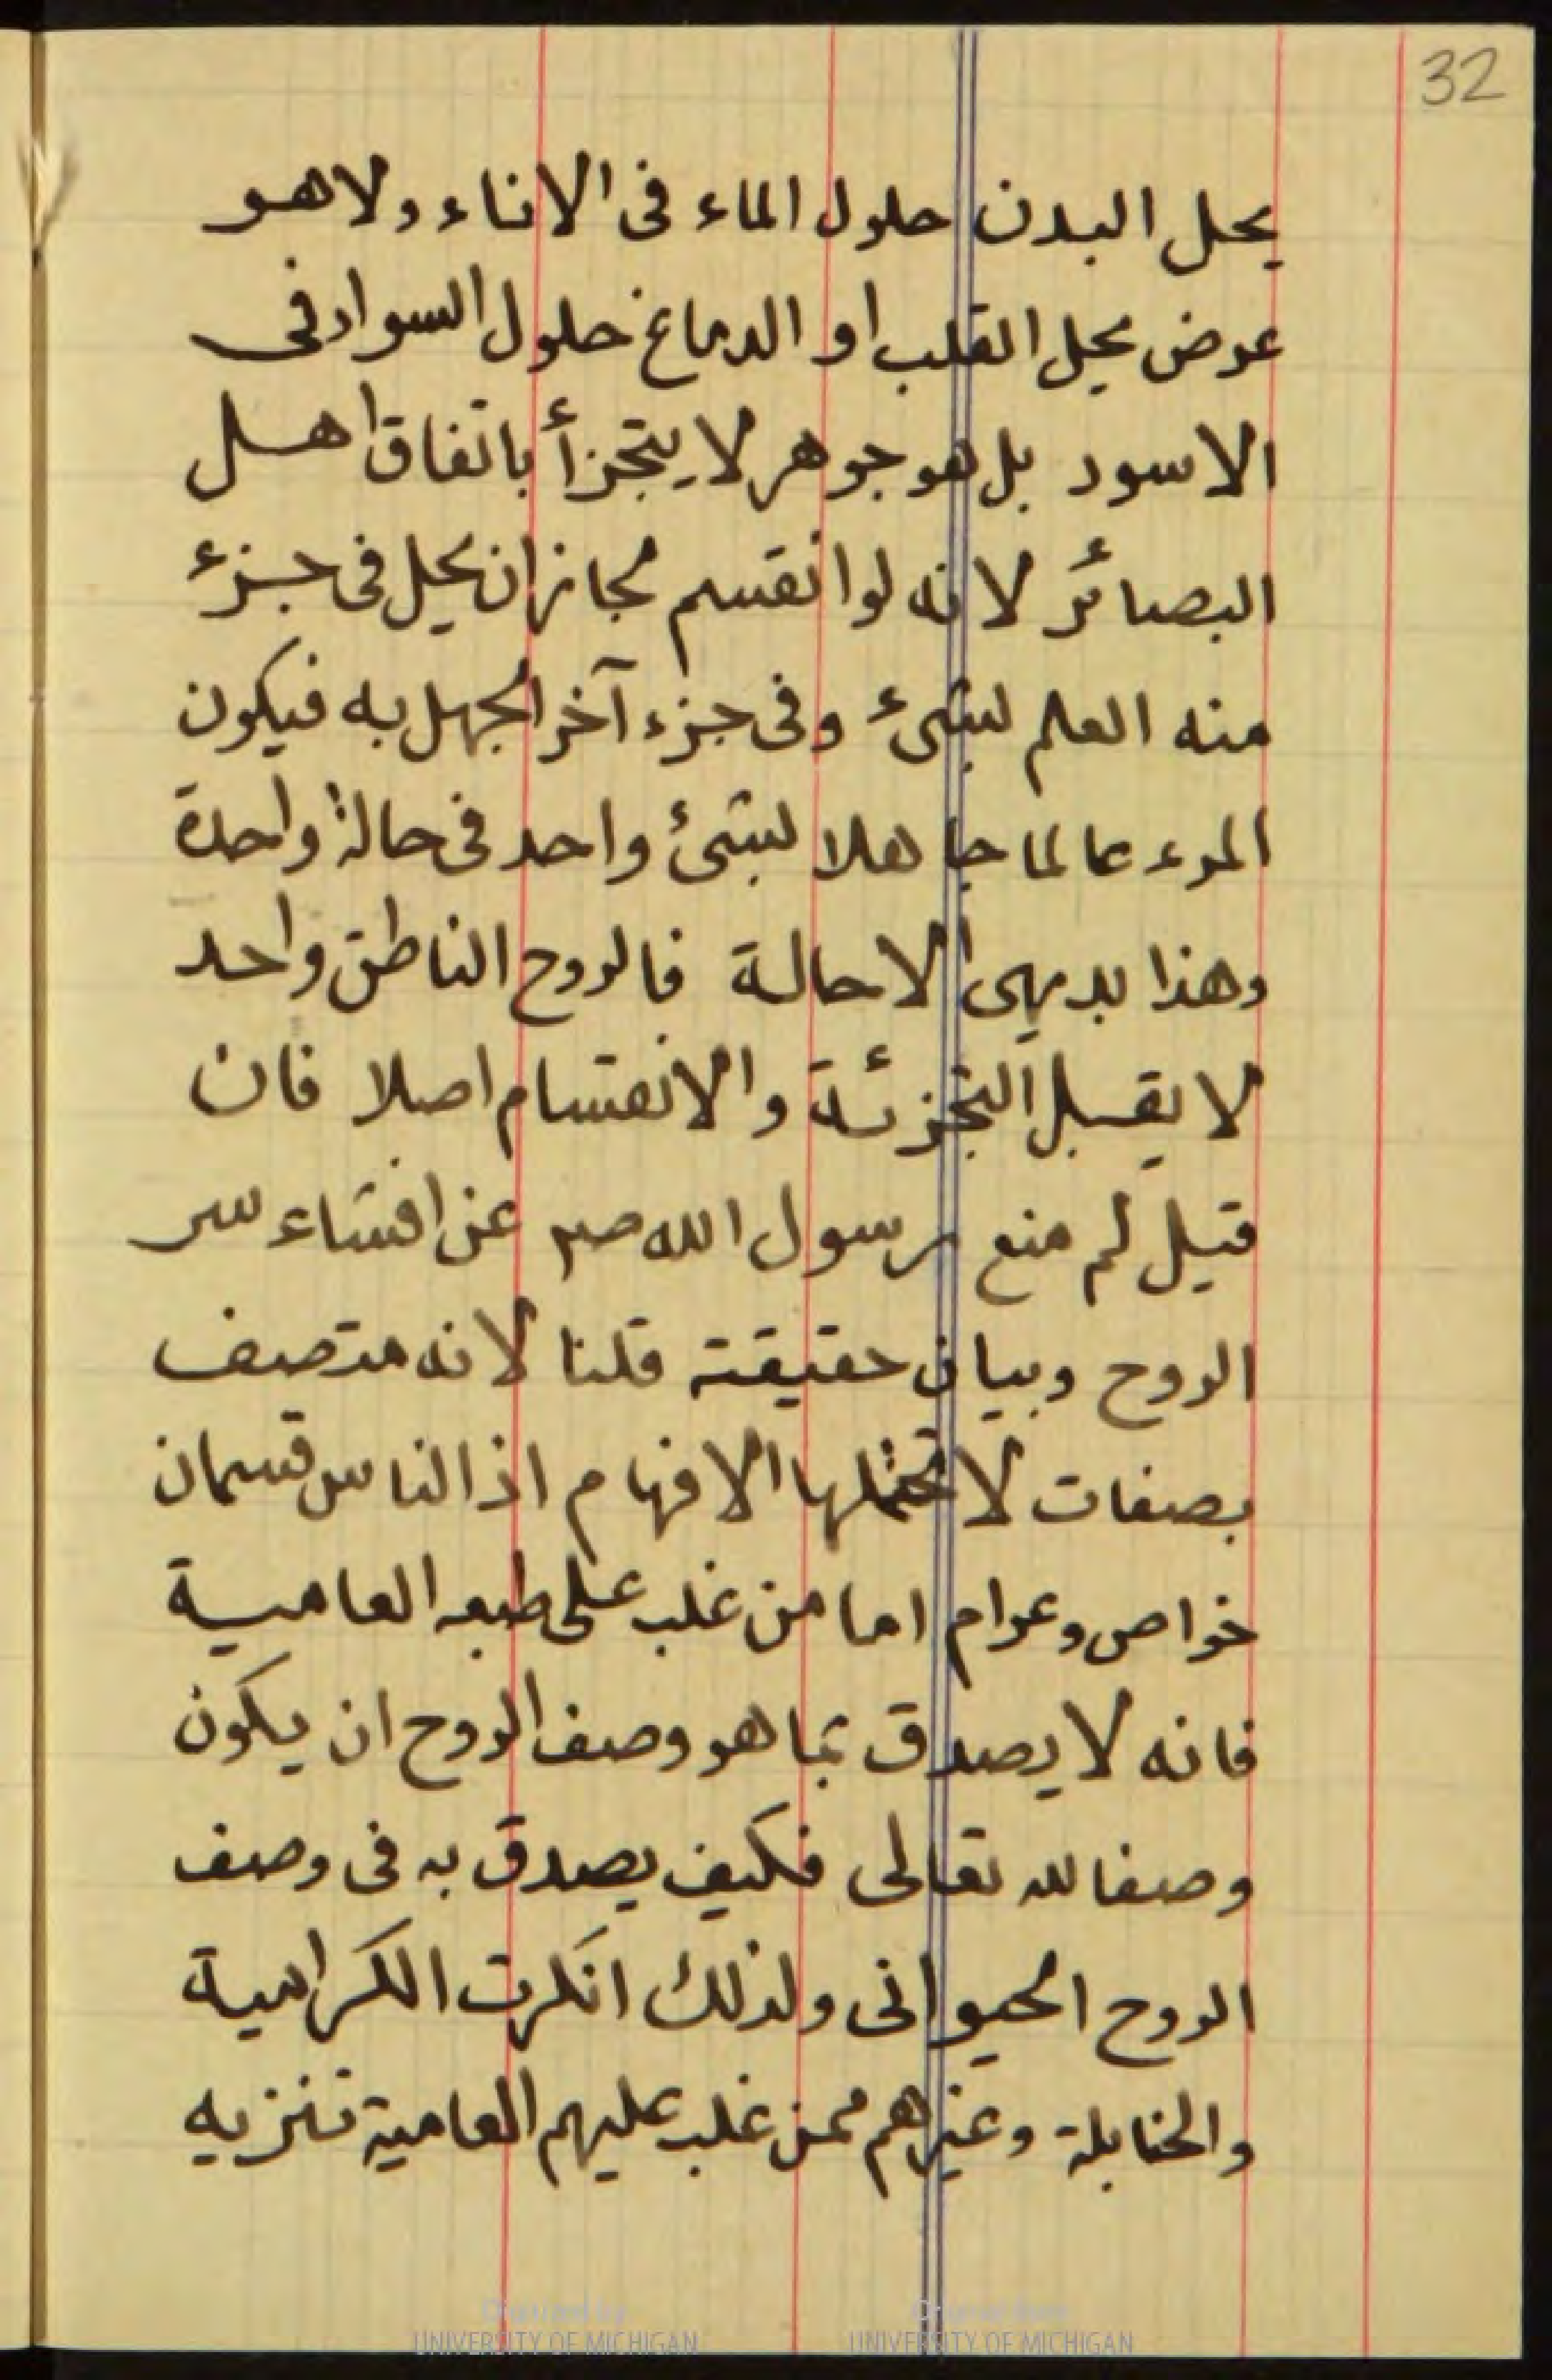 32
يحل البدن حلول الماء فى الاناء ولا هو
عرض يحل القلب او الدماغ حلول السواد فى
الاسود بل هو جوهر لا يتجزأ باتفاق اهل
البصائر لانه لو انقسم لجاز ان يحل فى جزء
منه العلم لشئ وفى جزء آخر الجهل به فيكون
المرء عالما جاهلا لشئ واحد فى حالة واحدة
وهذا بديهى الاحالة فالروح الناطق واحد
لا يقبل التجزئة والانقسام اصلا فان
قيل لم منع رسول الله صم عن افشاء سر
الروح وبيان حقيقته قلنا لانه متصف
بصفات لا تحتملها الافهام اذ الناس قسمان
خواص وعوام اما من غلب على طبعه العامية
فانه لا يصدق بما هو وصف الروح ان يكون
وصفا لله تعالى فكيف يصدق به فى وصف
الروح الحيوانى ولذلك انكرت الكرامية
والحنابلة وغيرهم ممن غلب عليهم العامية تنزيه
Digitized by
UNIVERSITY OF MICHIGAN
Original from
UNIVERSITY OF MICHIGAN